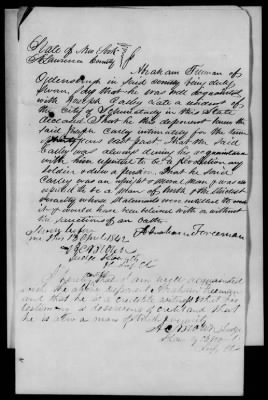 State of New York
St Lawrence County
Abraham Freeman of
Ogdensburgh in said County being duly
sworn, says that he was well acquainted
with Joseph Carley late a resident of
the City of Schenectady in this State
deceased. That he this deponent knew the
said Joseph Carley intimately for the term
years last past. That the said
Carley was always during his acquaintance
with him reputed to be a Revolutionary
Soldier & a pensioner. That he said
Carley was an upright & moral man & was
reputed to be a man of truth & the strictest
veracity whose statements were entitled to
it & could have been believed with or without
the sanctions of an oath.
Abraham Freeman
Sworn before
me this 13 April 1842
Justice
I certify that I am well acquainted
with the above deponent Abraham Freeman
and that he is a credible witness & that his
testimony is deserving of credit and that
he is a man of truth & veracity